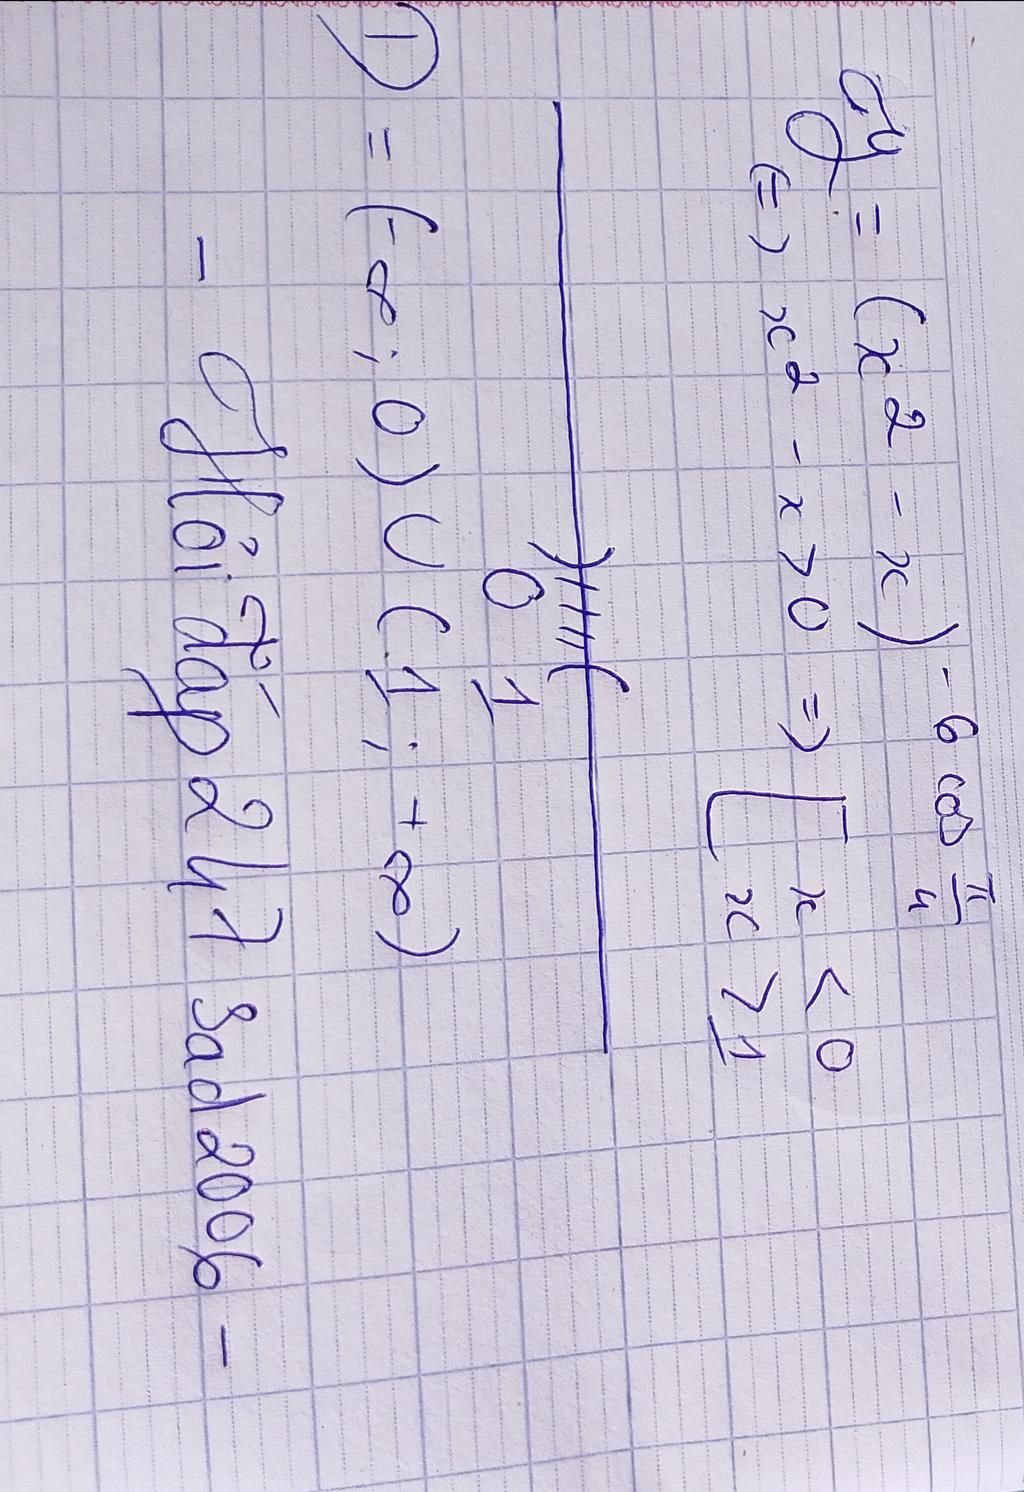 y = (x² - x)^(-6 cos π/4)
(=) x² - x > 0 => [ x < 0
x > 1
0 1
D = (-∞; 0) ∪ (1; +∞)
- Hỏi đáp 247 Sad2006 -